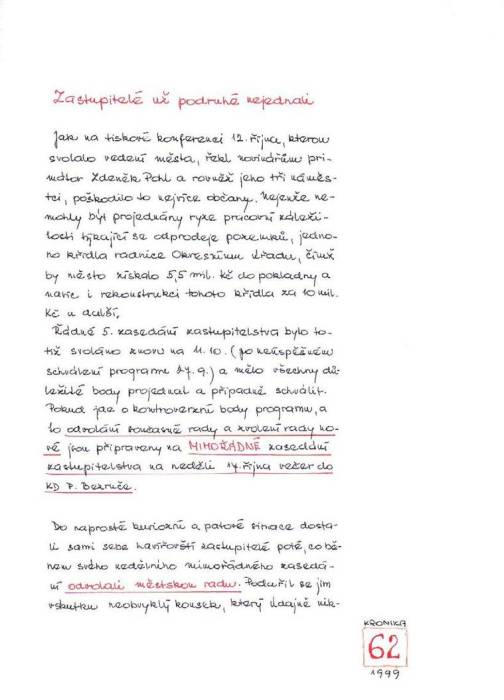 Zastupitelé už podruhé nejednali
Jak na tiskové konferenci 12. října, kterou
svolalo vedení města, řekl novinářům pri-
mátor Zdeněk Pohl a rovněž jeho tři náměs-
tci, poškodilo to nejvíce občany. Nejenže ne-
mohly být projednány ryze pracovní záleži-
tosti týkající se odprodeje pozemků, jedno-
ho křídla radnice Okresnímu úřadu, čímž
by město získalo 5,5 mil. Kč do pokladny a
navíc i rekonstrukci tohoto křídla za 10 mil.
Kč a další.
Řádné 5. zasedání zastupitelstva bylo to-
tiž svoláno znovu na 11.10. (po neúspěšném
schválení programu 27.9.) a mělo všechny dů-
ležité body projednat a případně schválit.
Pokud jde o kontroverzní body programu, a
to odvolání současné rady a zvolení rady no-
vé jsou připraveny na MIMOŘÁDNÉ zasedání
zastupitelstva na neděli 17. října večer do
KD P. Bezruče.
Do naprosté kuriozní a patové situace dosta-
li sami sebe havířovští zastupitelé poté, co bě-
hem svého nedělního mimořádného zasedá-
ní odvolali městskou radu. Podařil se jim
vskutku neobvyklý kousek, který údajně nik-
KRONIKA
62
1999